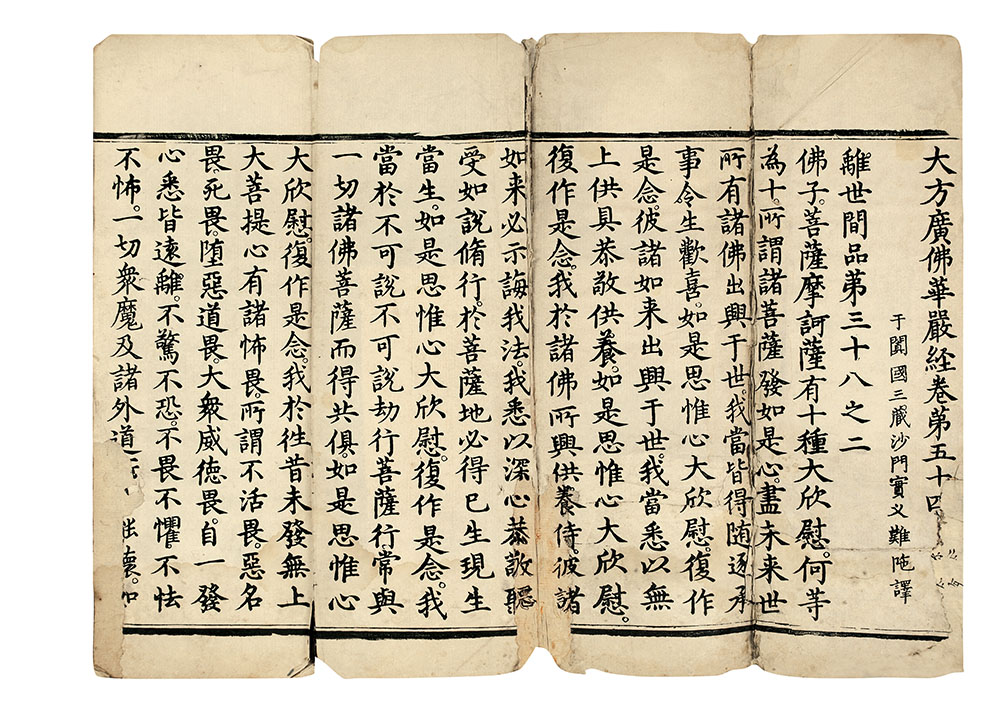 大方廣佛華嚴經卷第五十四
于闐國三藏沙門實叉難陁譯
離世間品第三十八之二
佛子。菩薩摩訶薩有十種大欣慰。何等
為十。所謂諸菩薩發如是心。盡未来世
所有諸佛出興于世。我當皆得随逐承
事令生歡喜。如是思惟心大欣慰。復作
是念。彼諸如来出興于世。我當悉以無
上供具恭敬供養。如是思惟心大欣慰。
復作是念。我於諸佛所興供養侍。彼諸
如来必示誨我法。我悉以深心恭敬聽
受如說脩行。於菩薩地必得已生現生
當生。如是思惟心大欣慰。復作是念。我
當於不可說不可說劫行菩薩行常與
一切諸佛菩薩而得共俱。如是思惟心
大欣慰。復作是念。我於徃昔未發無上
大菩提心有諸怖畏。所謂不活畏。惡名
畏。死畏。堕惡道畏。大衆威德畏。自一發
心悉皆遠離。不驚不恐。不畏不懼不怯
不怖。一切衆魔及諸外道所 壞。如